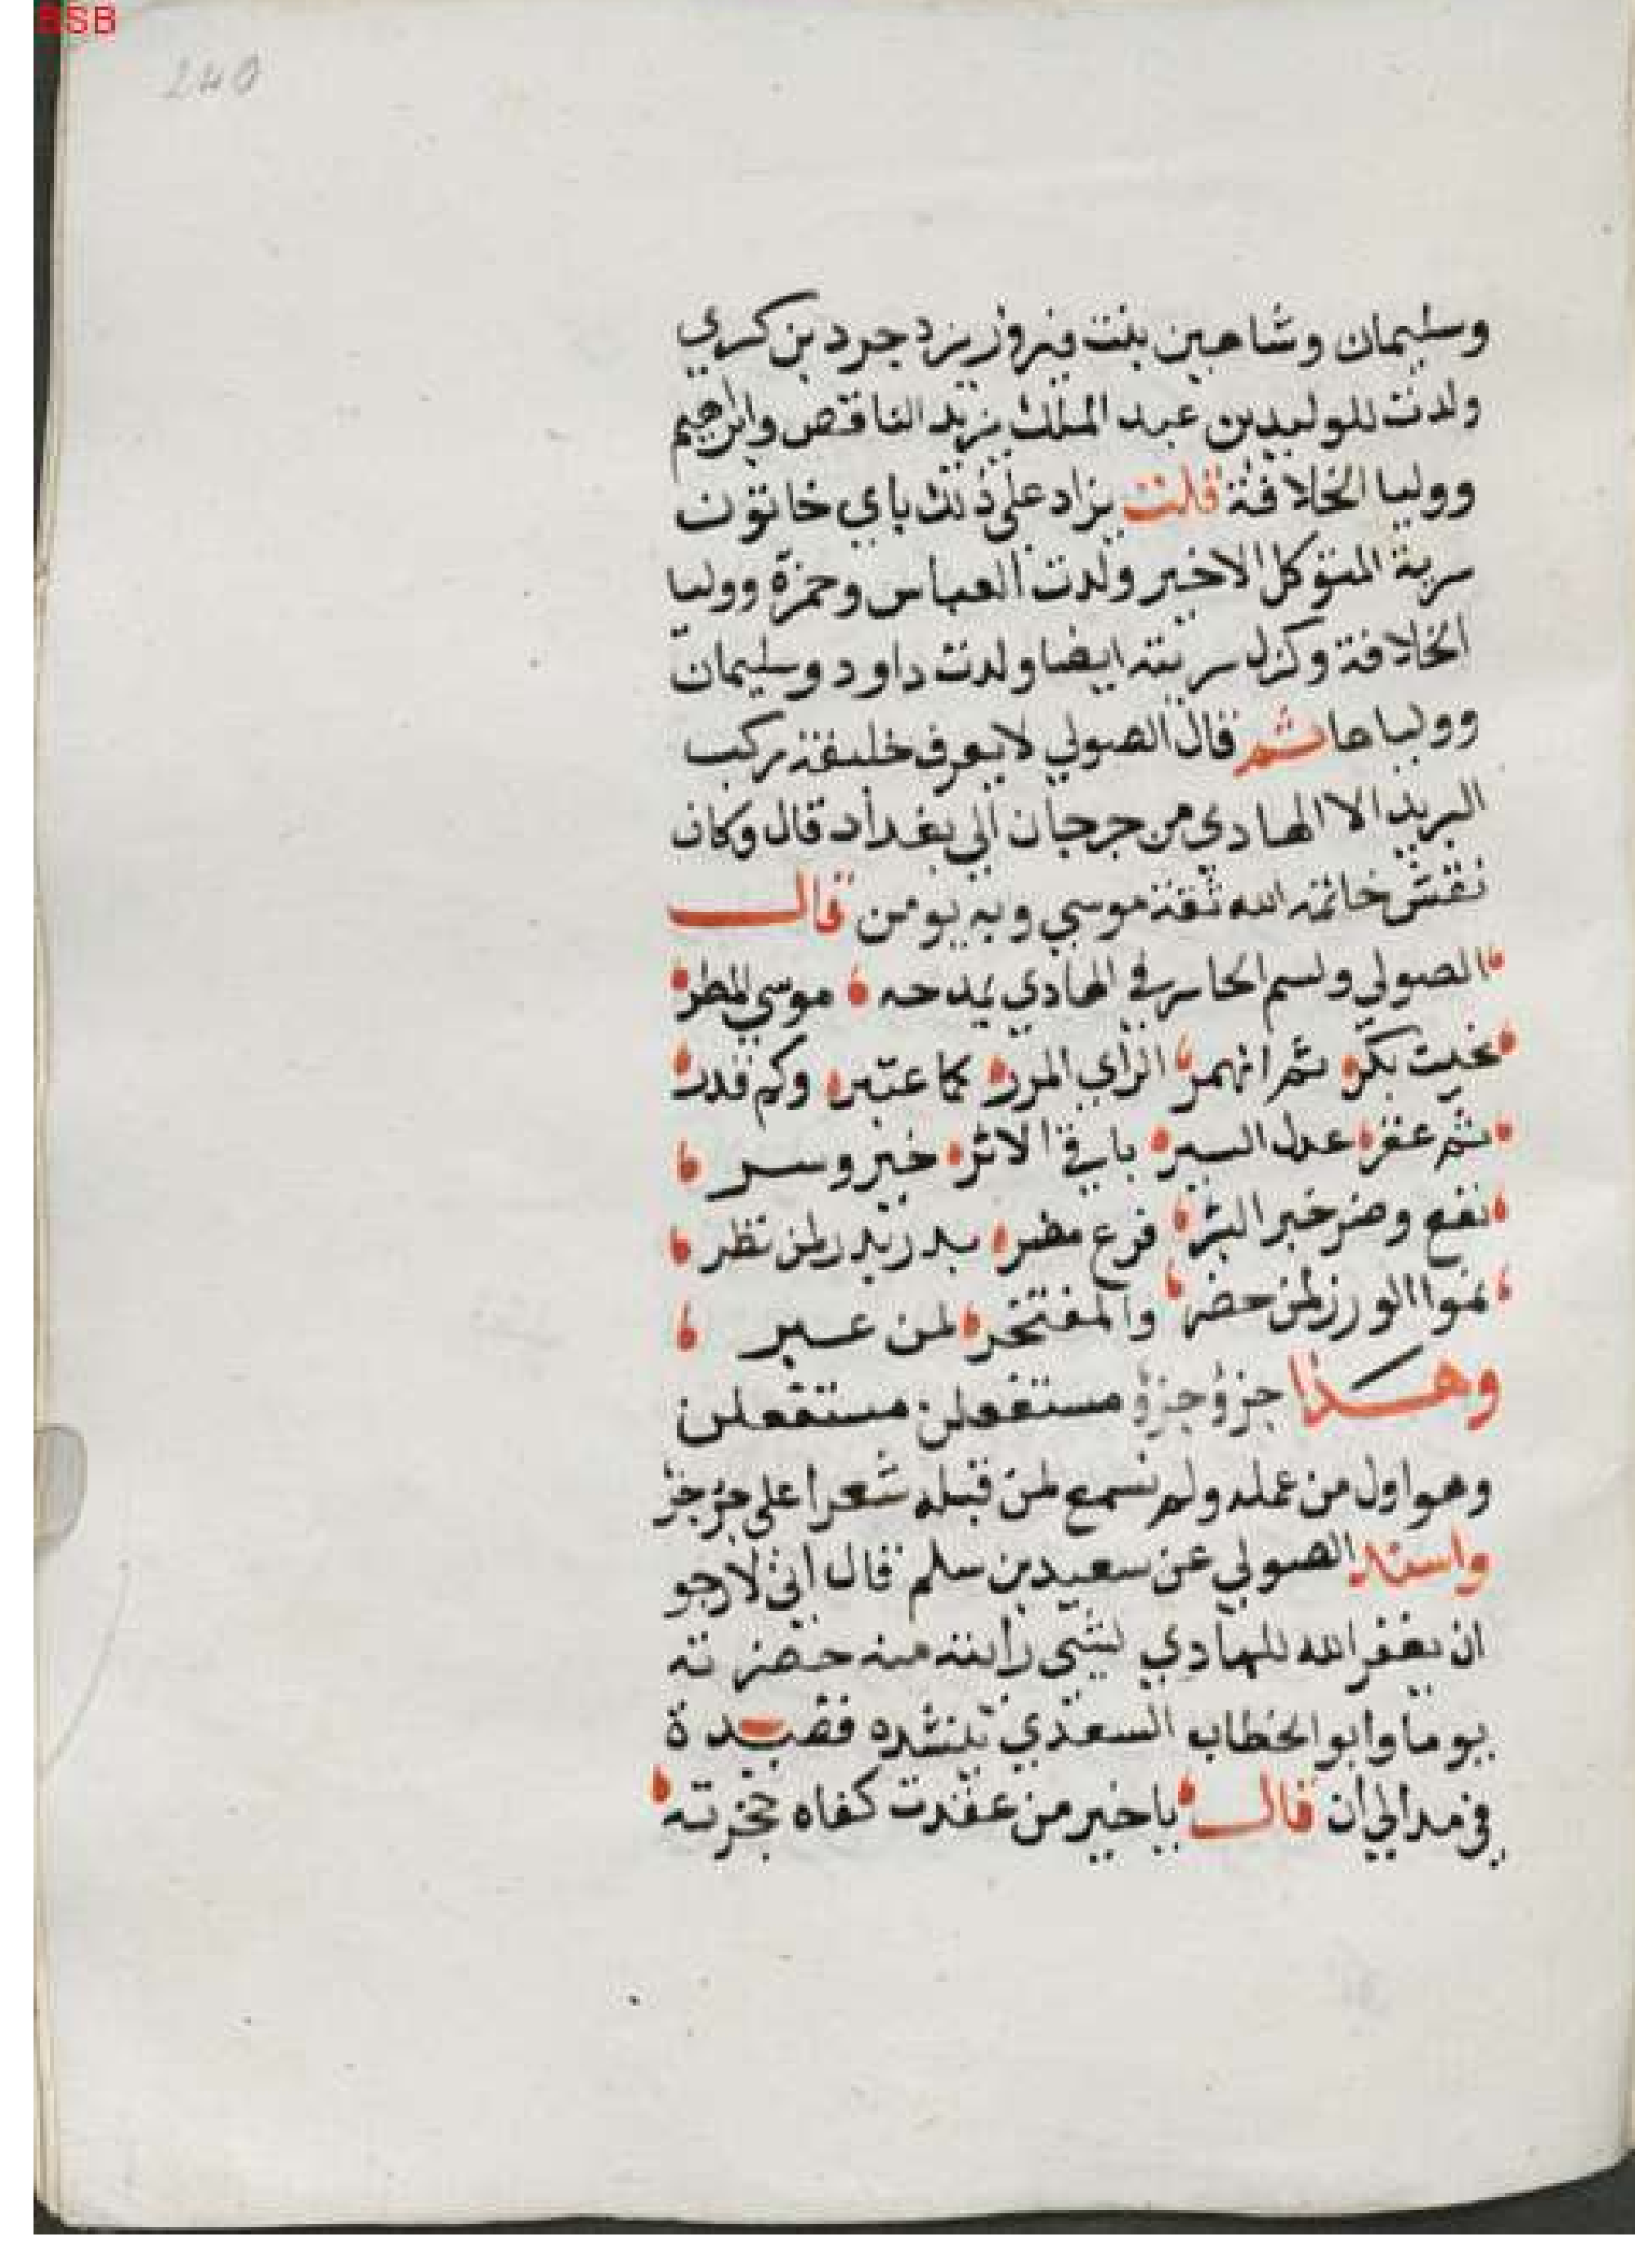 BSB
240
وسليمان وشاهين بنت فيروز يزد جرد بن كري
ولدت للوليد بن عبد الملك يزيد الناقص وابراهيم
ووليا الخلافة قلت يزاد على ذلك باي خاتون
سرية المتوكل الاخير ولدت العباس وحمزة ووليا
الخلافة وكزل سريته ايضا ولدت داود وسليمان
ووليا هاشم قال الصولي لا يعرف خليفة ركب
البريد الا الهادي من جرجان الى بغداد قال وكان
نقش خاتمه الله ثقة موسى وبه يومن قال
الصولي ولسم الخاسر في الهادي يمدحه موسى المطر
غيت بكر ثم انهمر الزاي المرر كما عتبر وكم قدر
ثم غفر عدل السير باقي الاثر خير وسر
نفع وضر خير البشر فرع مضر بدر بدر لمن نظر
هوا الوزر لمن حضر والمفتخر لمن عبر
وهذا جزؤ جزؤ مستفعلن مستفعلن
وهو اول من عمله ولم نسمع لمن قبله شعرا على جز جز
واسند الصولي عن سعيد بن سلم قال اني لارجو
ان يغفر الله للهادي لشي رايته منه حضرته
يوما وابو الخطاب السعدي ينشده قصيدة
في مد الى ان قال يا خير من عقدت كفاه حجزته